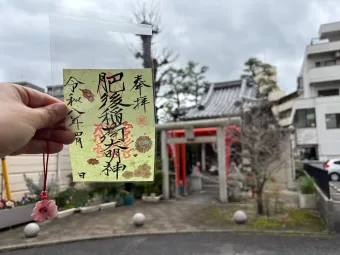 奉拝
肥後稲荷大明神
令和八年
月
日